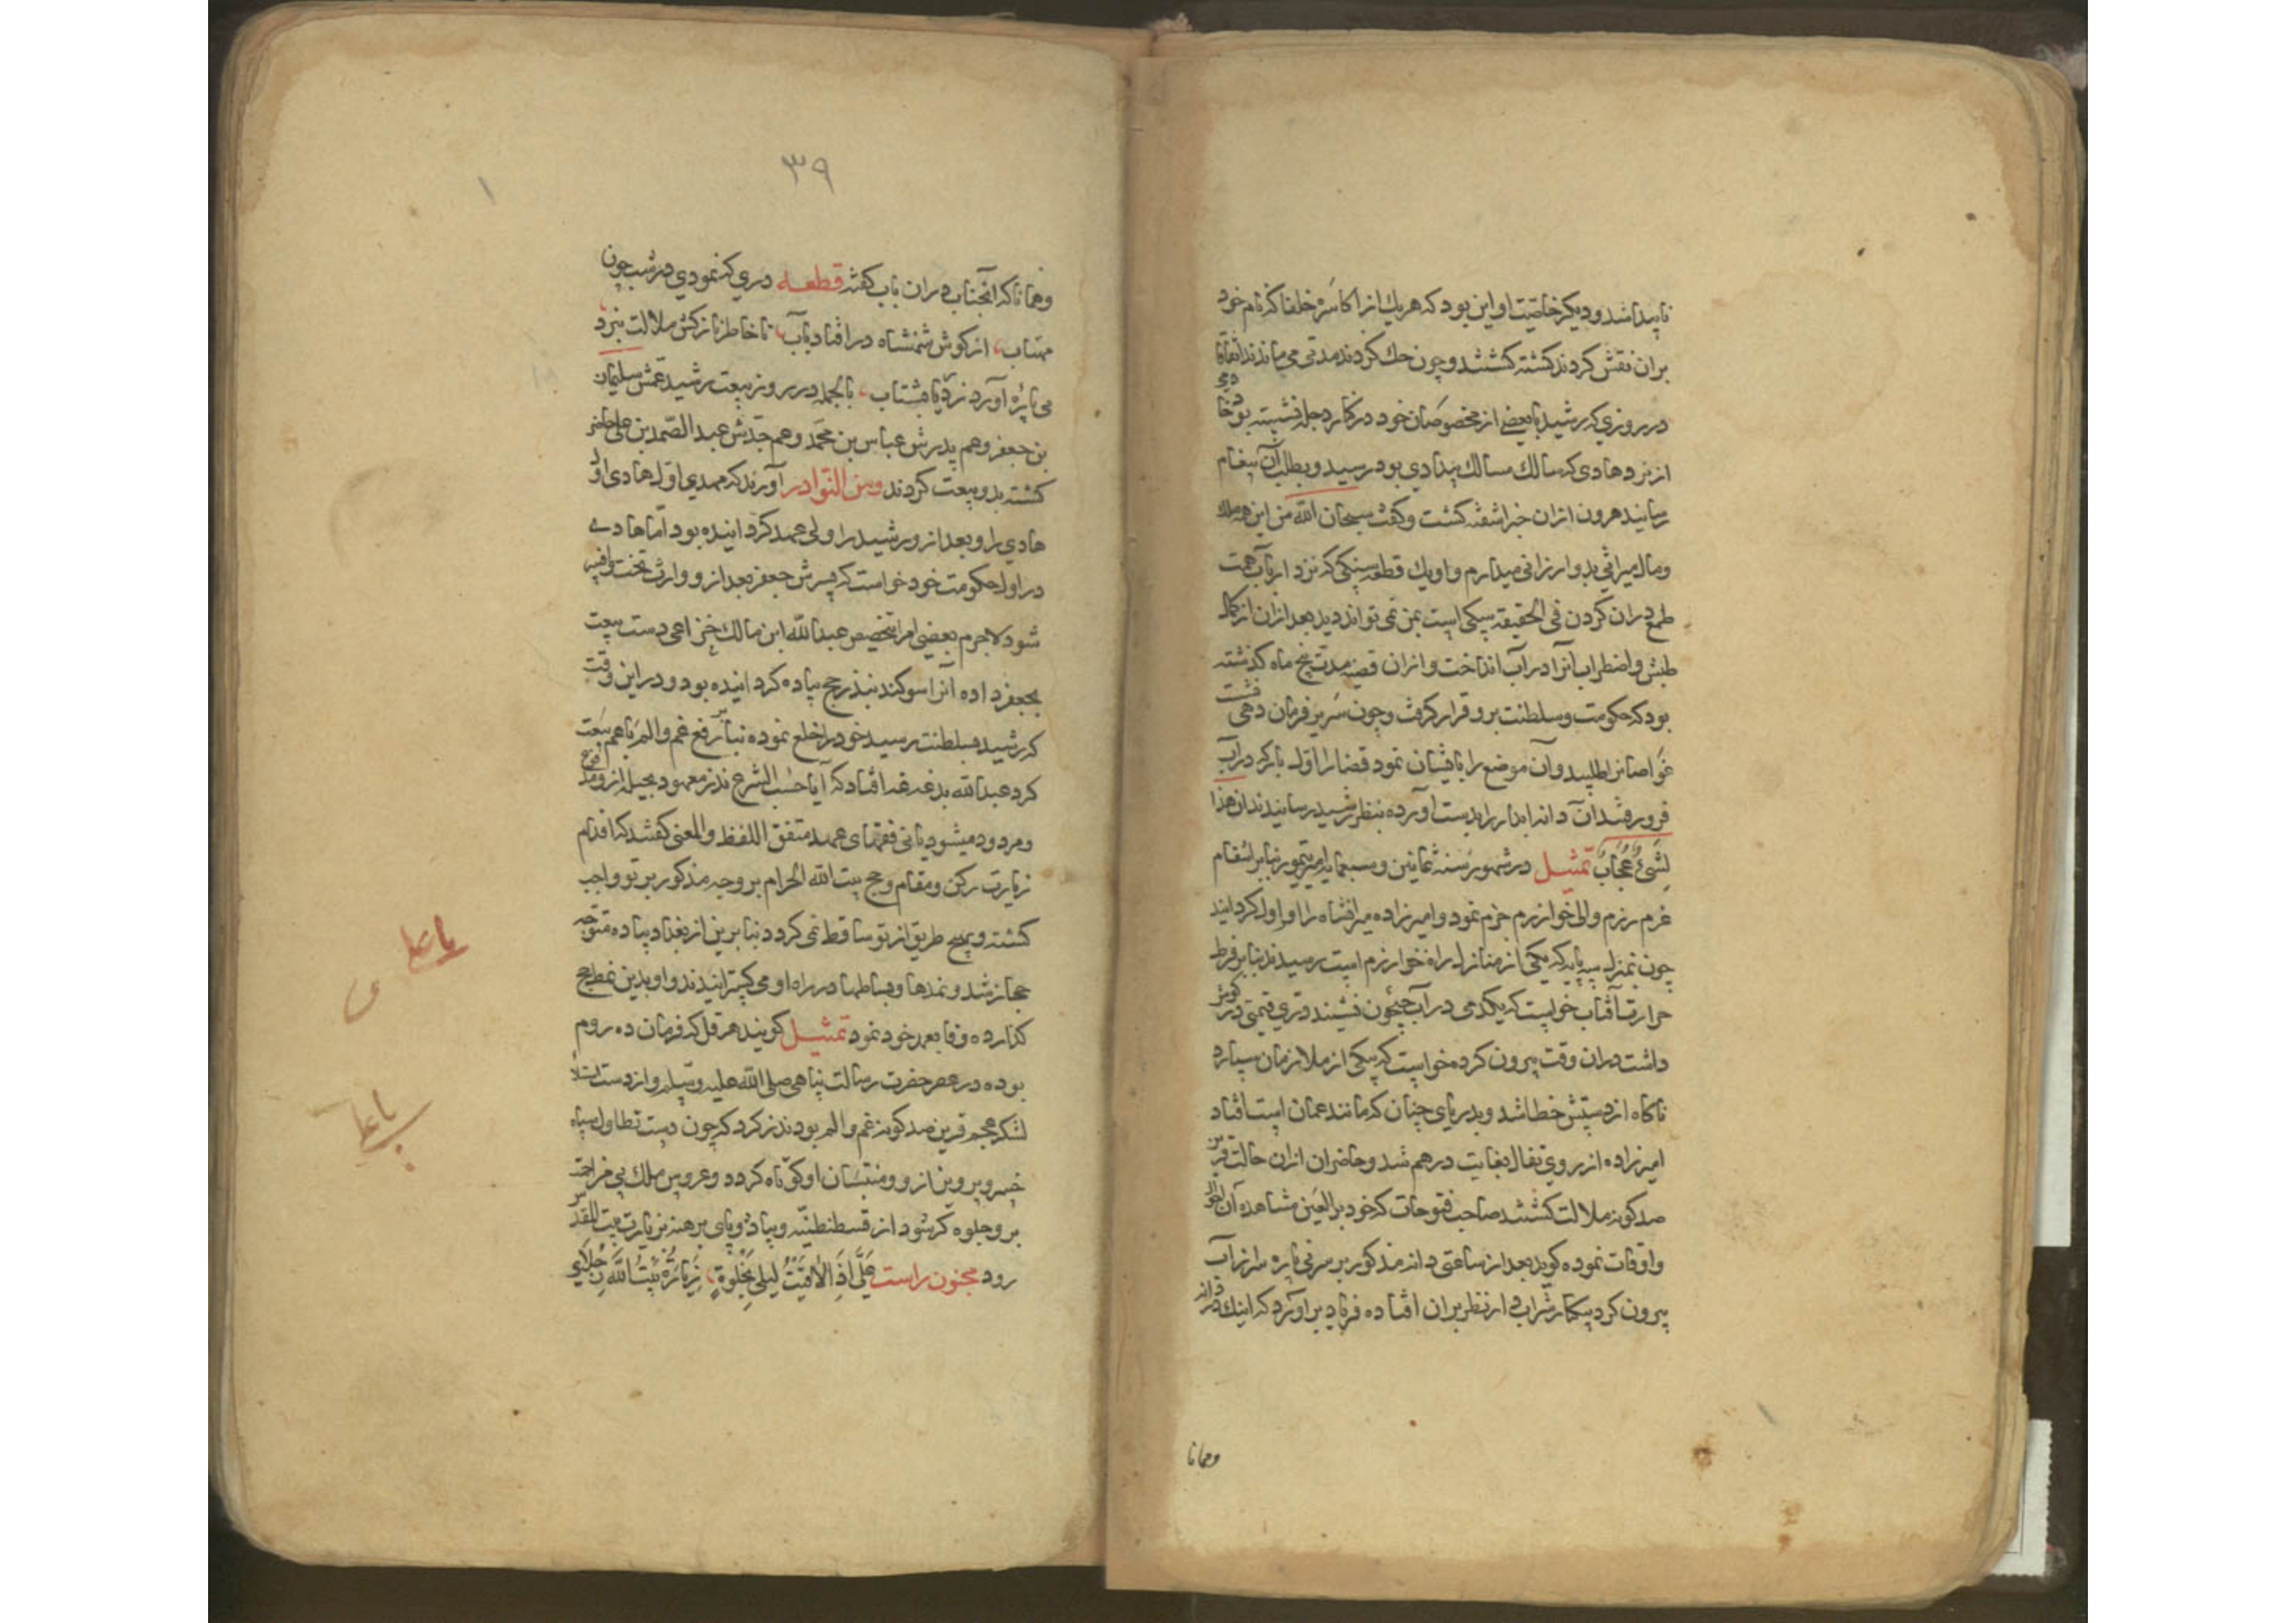 ناپیدا شد و دیگر خاصیت او این بود که هر یک از اکاسره خلفا که نام خود
بران نقش کردند کشته کشتند و چون حک کردند مدتی می ماندند اتفاقا
در روزی که رشید با بعضی از مخصوصان خود در کنار دجله نشسته بود
از نزد هادی که سالک مسالک بیدادی بود رسید و بطلب آن پیغام
رسانید هرون ازان خبر اشفته کشت و کفت سبحان الله من این همه ملک
و مال میراثی بدو ارزانی میدارم و او یک قطعه سنکی که نزد ارباب همت
طمع دران کردن فی الحقیقه سبکی است بمن نمی تواند دید بعد ازان از کمال
طیش و اضطراب آنرا در آب انداخت و ازان قضیه مدت پنج ماه کذشته
بود که حکومت و سلطنت برو قرار کرفت و چون سریر فرمان دهی
غواصانرا طلبید و آن موضع را بایشان نمود قضا را اول بار که در آب
فرو رفتند آن دانه ابدار را بدست اورده بنظر رشید رسانیدند ان هذا
لشیء عجاب تمثیل در شهور سنه ثمانین و سبعمایه امیر تیمور بنابر انتقام
عزم رزم والی خوارزم جزم نمود و امیرزاده میرانشاه را اول کردانید
چون بمنزل سه پایه که یکی از منازل راه خوارزم است رسیدند بنابر فرط
حرارت آفتاب خواست که یکدمی در آب جیحون نشیند و دری قیمتی در کوش
داشت دران وقت بیرون کرده خواست که بیکی از ملازمان سپارد
ناکاه از دستش خطا شد و بدریای چنان که مانند عمان است افتاد
امیرزاده از روی تفال بغایت درهم شد و حاضران ازان حالت قرین
صد کونه ملالت کشتند صاحب فتوحات که خود برأی العین مشاهده آن احوال
و اوقات نموده کوید بعد از ساعتی دانه مذکور بر سر نی پاره سر از آب
بیرون کرد بیکبار شرابدار را نظر بران افتاده فریاد براورد که اینک دردانه
وهمانا
۳۹
وهمانا که آنجناب دران باب کفته قطعه دری که نمودی در شب چون
مهتاب، از کوش شهنشاه در افتاد بآب، تا خاطر نازکش ملالت نبرد
نی پاره آورد زدریا بشتاب، بالجمله در روز بیعت رشید عمش سلیمان
بن جعفر و عم پدرش عباس بن محمد و عم جدش عبد الصمد بن علی حاضر
کشته بدو بیعت کردند ومن النوادر آورند که مهدی اول هادی او
هادی را و بعد ازو رشید را ولی عهد کردانیده بود اما هادی
در اول حکومت خود خواست که پسرش جعفر بعد ازو وارث تخت و افسر
شود لاجرم بعضی امرا بتخصیص عبدالله ابن مالک خزاعی دست بیعت
بجعفر داده آنرا سوکند بنذر حج پیاده کردانیده بود و در این وقت
که رشید بسلطنت رسید خود را خلع نموده بنابر رفع غم و الم با عم بیعت
کرد عبدالله بدغدغه افتاد که آیا حسب الشرع نذر معهود بحیل ازو مدفوع
و مردود میشود یا نی فقهای عهد متفق اللفظ والمعنی کفتند که اقدام
زیارت رکن و مقام و حج بیت الله الحرام بر وجه مذکور بر تو واجب
کشته و بهیچ طریق از تو ساقط نمی کردد بنابرین از بغداد پیاده متوجه
حجاز شد و نمدها و بساطها در راه او می کسترانیدند و او بدین نمط حج
کذارده وفا بعهد خود نمود تمثیل کویند هرقل که فرمان ده روم
بوده در عصر حضرت رسالت پناهی صلی الله علیه وسلم و از دست
لشکر عجم قرین صد کونه غم و الم بود نذر کرد که چون دست تطاول سپاه
خسرو پرویز ازو و منتسبان او کوتاه کردد و عروس ملک بی مزاحمت
برو جلوه کر شود از قسطنطنیه پیاده و پای برهنه بزیارت بیت المقدس
رود مجنون راست علی اذا لاقیت لیلی بخلوة، زیارة بیت الله رجلای
یا علی
ی
یا علی